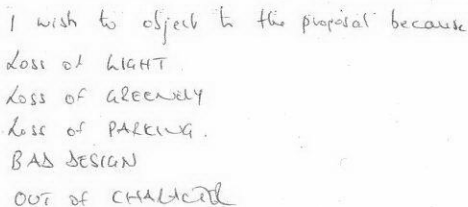 I wish to object to the proposal because
Loss of LIGHT.
Loss of GREENERY
Loss of PARKING.
BAD DESIGN
OUT OF CHARACTER